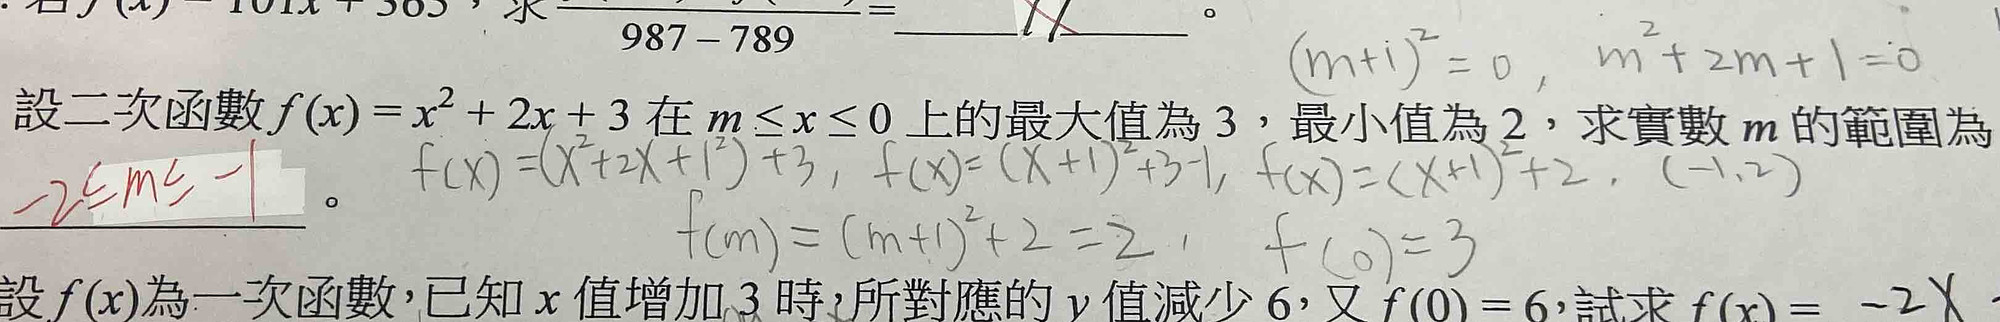 987 − 789
(m+1)² = 0, m² + 2m + 1 = 0
設二次函數 f(x) = x² + 2x + 3 在 m ≤ x ≤ 0 上的最大值為 3，最小值為 2，求實數 m 的範圍為
f(x) = (x²+2x+1²)+3, f(x) = (x+1)²+3-1, f(x) = (x+1)²+2. (-1,2)
-2 ≤ m ≤ -1 。
f(m) = (m+1)² + 2 = 2, f(0) = 3
設 f(x)為一次函數，已知 x 值增加 3 時，所對應的 y 值減少 6，又 f(0) = 6，試求 f(x) = -2x